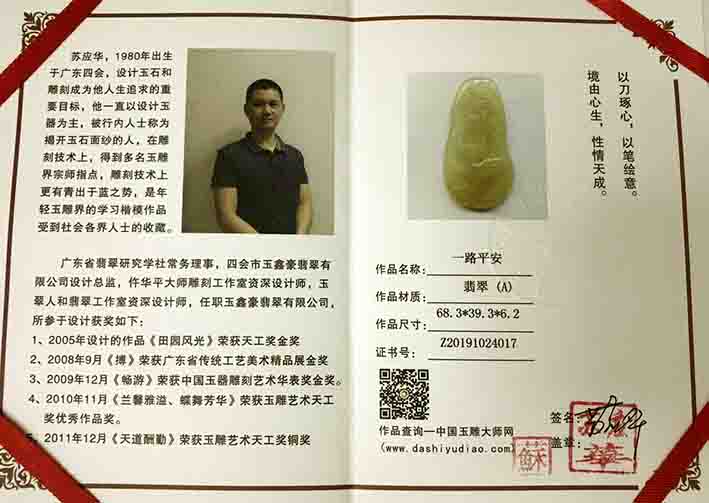 苏应华，1980年出生
于广东四会，设计玉石和
雕刻成为他人生追求的重
要目标，他一直以设计玉
器为主，被行内人士称为
揭开玉石面纱的人，在雕
刻技术上，得到多名玉雕
界宗师指点，雕刻技术上
更有青出于蓝之势，是年
轻玉雕界的学习楷模作品
受到社会各界人士的收藏。
广东省翡翠研究学社常务理事，四会市玉鑫豪翡翠有
限公司设计总监，仵华平大师雕刻工作室资深设计师，玉
翠人和翡翠工作室资深设计师，任职玉鑫豪翡翠有限公司，
所参于设计获奖如下：
1、2005年设计的作品《田园风光》荣获天工奖金奖
2、2008年9月《博》荣获广东省传统工艺美术精品展金奖
3、2009年12月《畅游》荣获中国玉器雕刻艺术华表奖金奖。
4、2010年11月《兰馨雅溢、蝶舞芳华》荣获玉雕艺术天工
奖优秀作品奖。
5、2011年12月《天道酬勤》荣获玉雕艺术天工奖铜奖
以刀琢心，以笔绘意。
境由心生，性情天成。
作品名称：一路平安
作品材质：翡翠（A）
作品尺寸：68.3*39.3*6.2
证书号：Z20191024017
作品查询—中国玉雕大师网
(www.dashiyudiao.com)
签名：
盖章：
蘇